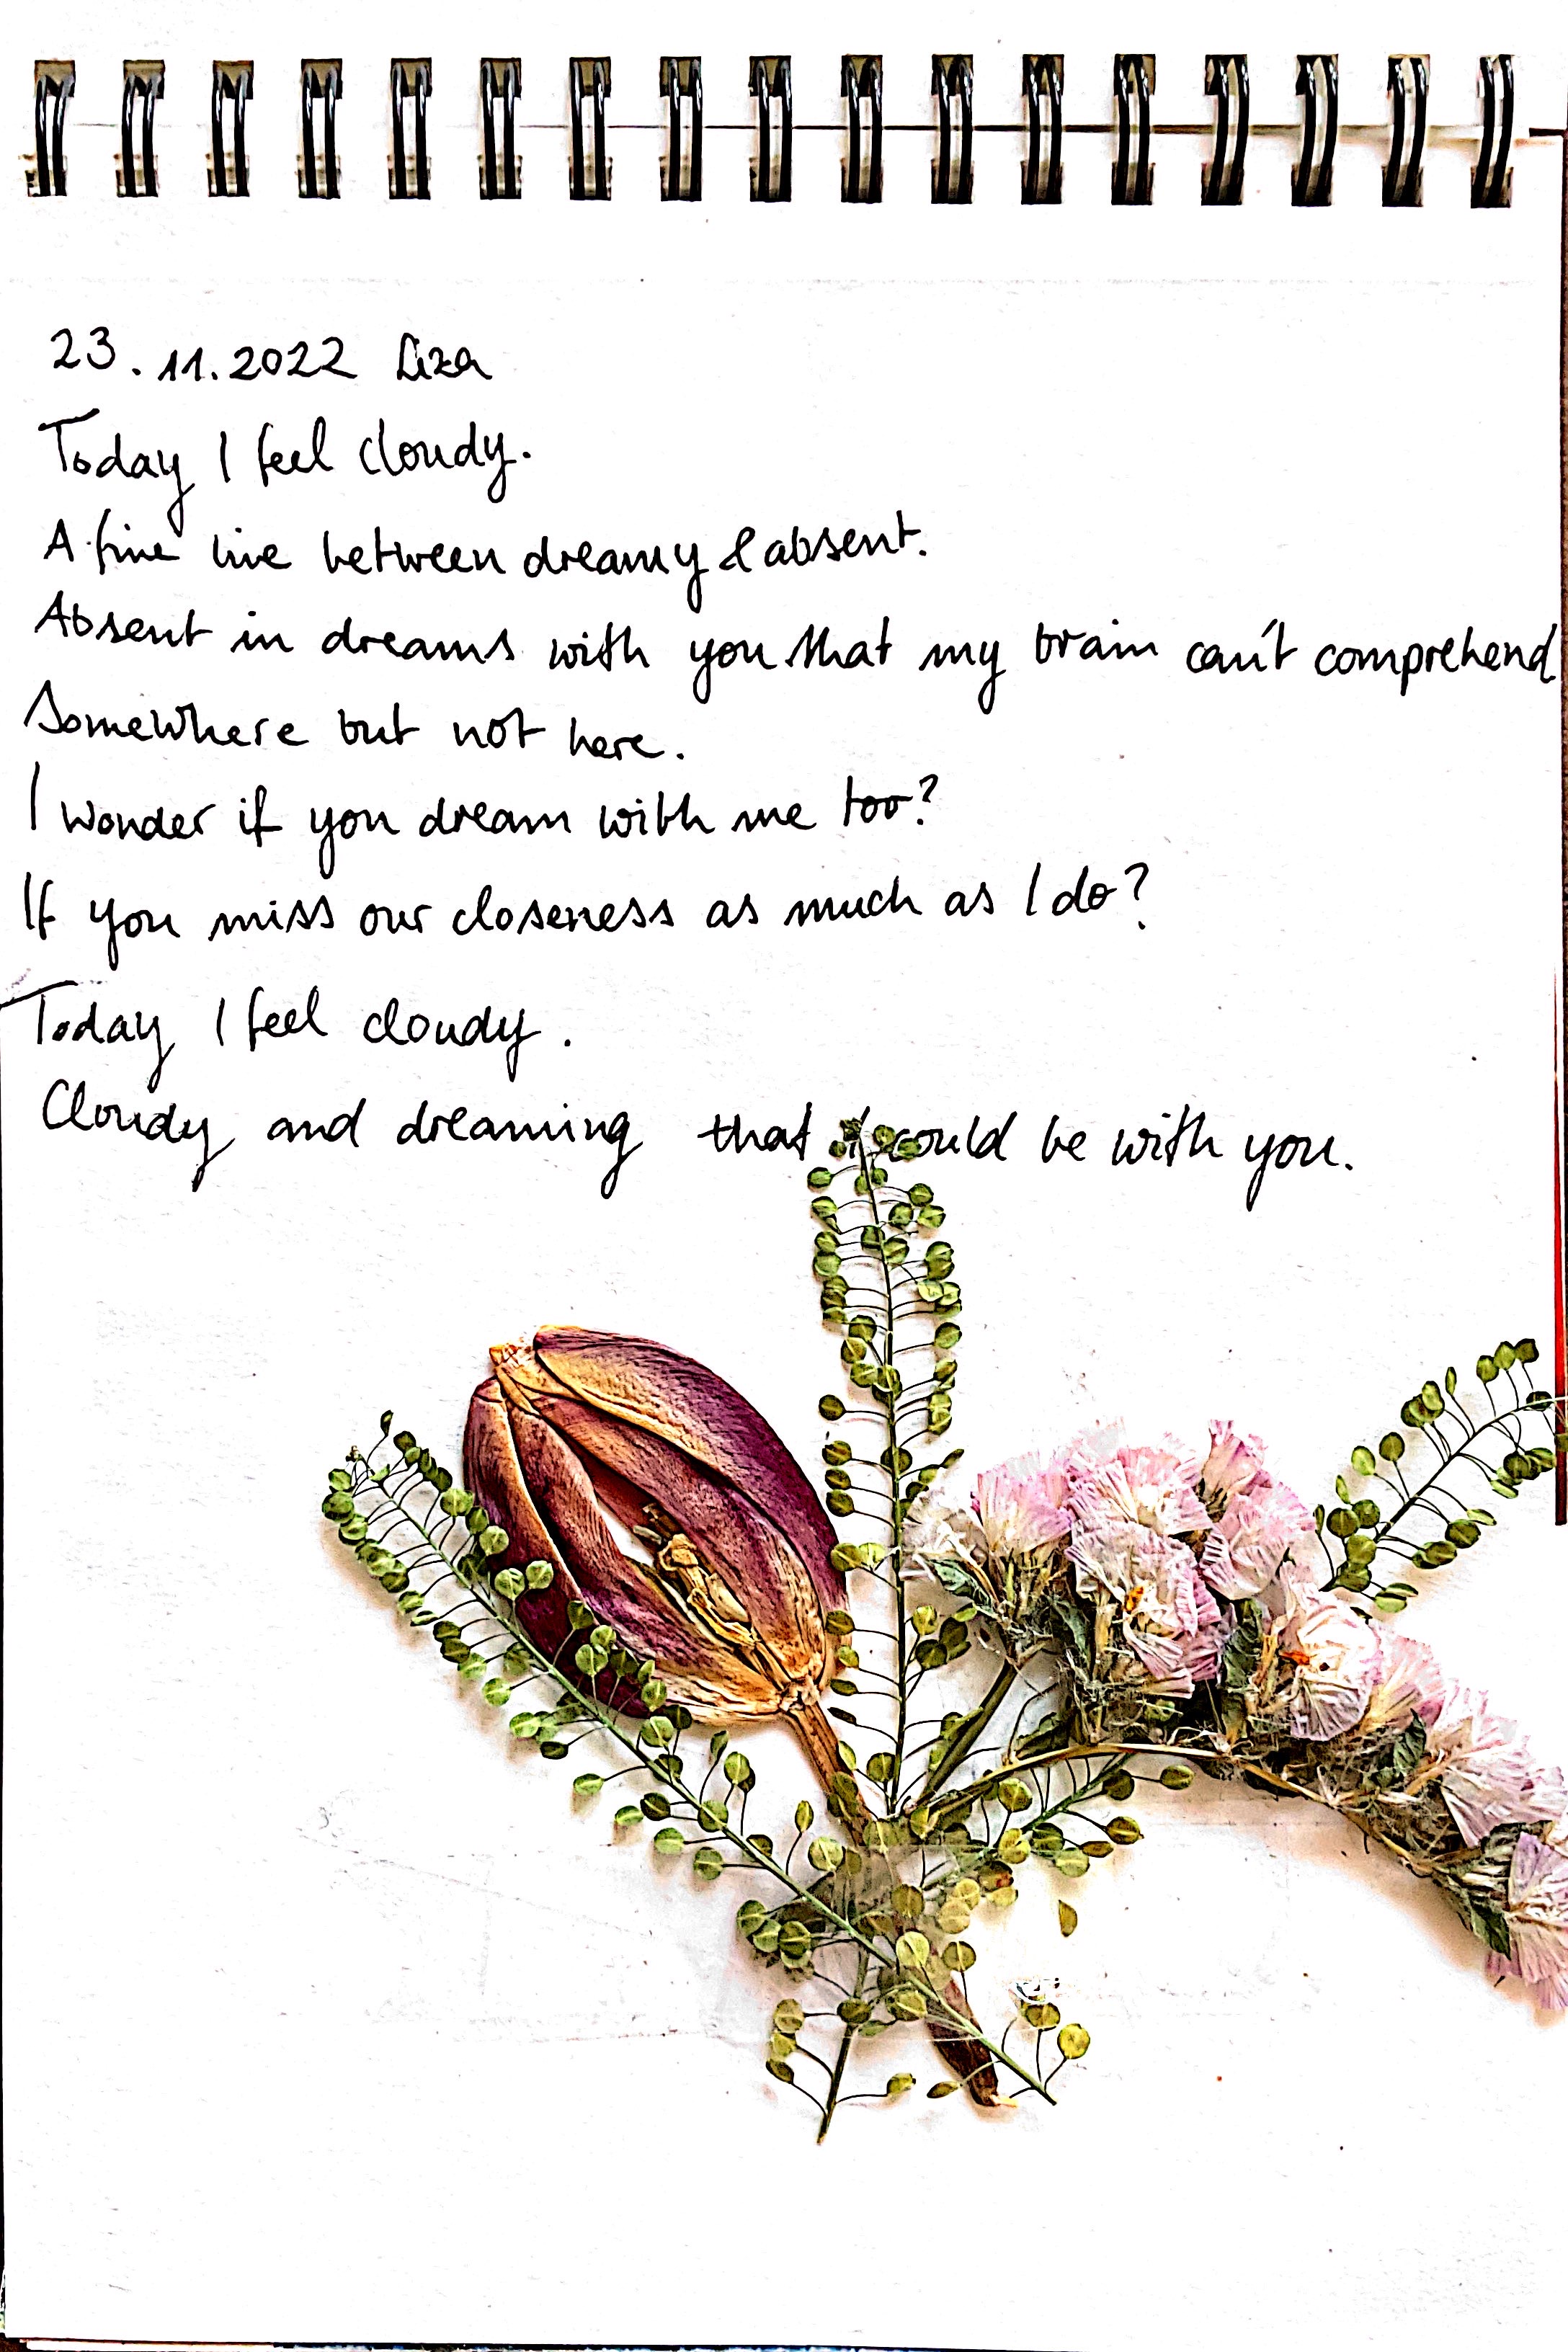 23.11.2022 Liza
Today I feel cloudy.
A fine line between dreamy & absent.
Absent in dreams with you that my brain can't comprehend
Somewhere but not here.
I wonder if you dream with me too?
If you miss our closeness as much as I do?
Today I feel cloudy.
Cloudy and dreaming that I could be with you.